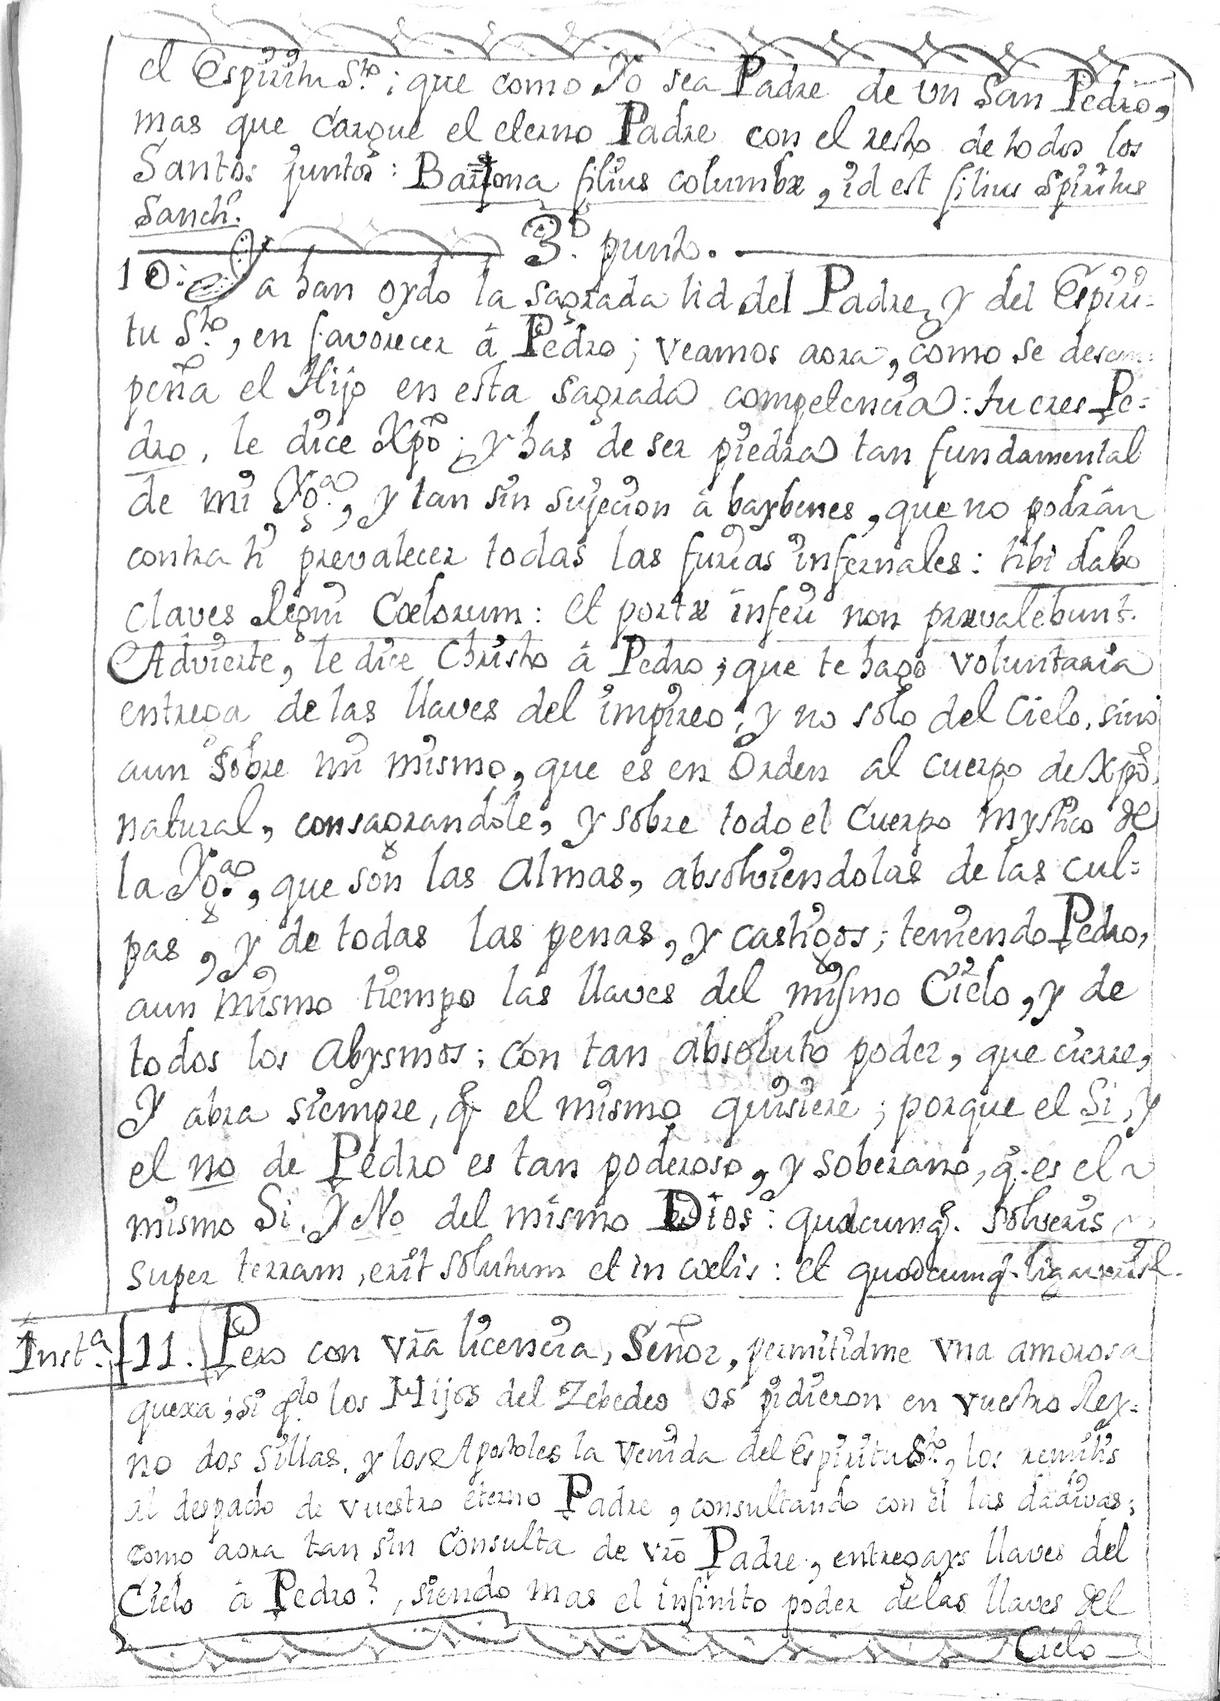 el Espiritu S.to; que como Yo sea Padre de un San Pedro,
mas que cargue el eterno Padre con el resto de todos los
Santos juntos: Barjona filius columbæ, id est filius Spiritus
Sancti.
3.º punto.
10. Ya han oydo la sagrada lid del Padre, y del Espiri-
tu S.to, en favorecer á Pedro; veamos aora, como se desem-
peña el Hijo en esta sagrada competencia: tu eres Pe-
dro, le dice Xpõ; y has de ser piedra tan fundamental
de mi Yg.a, y tan sin sujecion á baybenes, que no podrán
contra ti prevalecer todas las furias infernales: tibi dabo
claves Regni Cœlorum: et portæ inferi non prævalebunt.
Advierte, le dice Christo á Pedro; que te hago voluntaria
entrega de las llaves del impireo; y no solo del Cielo, sino
aun sobre mi mismo, que es en Orden al cuerpo de Xpõ.
natural, consagrandole, y sobre todo el Cuerpo mystico de
la Yg.a, que son las Almas, absolviendolas de las cul-
pas, y de todas las penas, y castigos; teniendo Pedro,
aun mismo tiempo las llaves del mismo Cielo, y de
todos los Abysmos; con tan absoluto poder, que cierre,
Y abra siempre, q̃ el mismo quisiere; porque el Si, y
el no de Pedro es tan poderoso, y soberano, q̃. es el
mismo Si, Y No del mismo Dios: quodcumq̃. solveris
super terram, erit solutum et in cœlis: et quodcumq̃. ligaveris &.
Inst.a 11. Pero con vr̃a licencia, Señor, permitidme una amorosa
quexa; si q.do los Hijos del Zebedeo os pidieron en vuestro Rey-
no dos Sillas, y los Apostoles la venida del Espiritu S.to, los remitis
al despacho de vuestro eterno Padre, consultando con él las dadivas;
como aora tan sin Consulta de vr̃o Padre, entregays llaves del
Cielo á Pedro?, siendo mas el infinito poder de las llaves del
Cielo